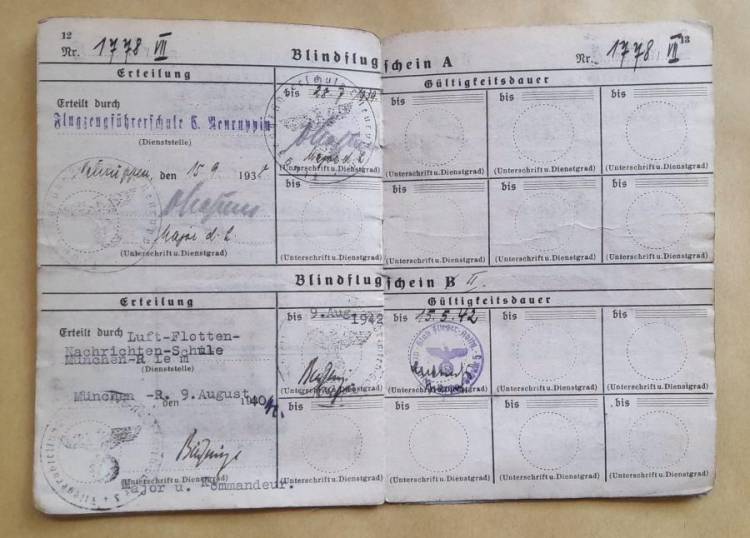 12
Nr. 1778 VII
Blindflugschein A
Nr. 1778 VII
13
Erteilung
Gültigkeitsdauer
Erteilt durch
Flugzeugführerschule C. Neuruppin
(Dienststelle)
Neuruppin, den 15 9 193
Major d. L
(Unterschrift u. Dienstgrad)
bis
Major d. L
(Unterschrift u. Dienstgrad)
bis
(Unterschrift u. Dienstgrad)
bis
(Unterschrift u. Dienstgrad)
bis
(Unterschrift u. Dienstgrad)
bis
(Unterschrift u. Dienstgrad)
bis
(Unterschrift u. Dienstgrad)
bis
(Unterschrift u. Dienstgrad)
bis
(Unterschrift u. Dienstgrad)
Blindflugschein B II.
Erteilung
Gültigkeitsdauer
Erteilt durch Luft-Flotten-
Nachrichten-Schule
München-R iem
(Dienststelle)
München -R. 9.August
den 1940
(Unterschrift u. Dienstgrad)
Major u. Kommandeur.
bis 9.Aug. 1942
(Unterschrift u. Dienstgrad)
bis 15.5.42
(Unterschrift u. Dienstgrad)
bis
(Unterschrift u. Dienstgrad)
bis
(Unterschrift u. Dienstgrad)
bis
(Unterschrift u. Dienstgrad)
bis
(Unterschrift u. Dienstgrad)
bis
(Unterschrift u. Dienstgrad)
bis
(Unterschrift u. Dienstgrad)